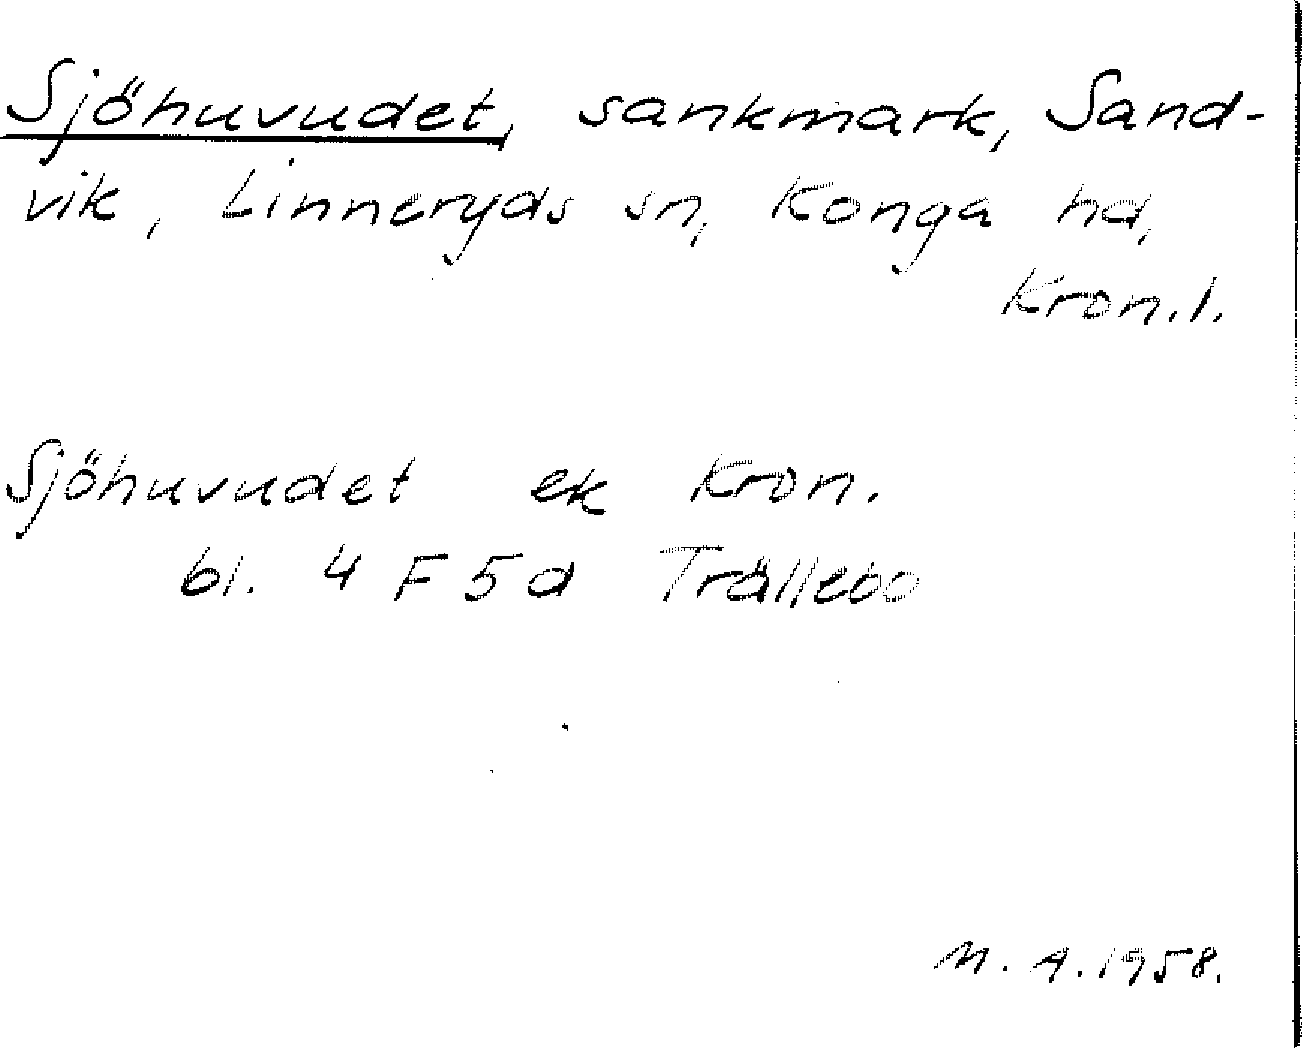 Sjöhuvudet, sankmark, Sand-
vik, Linneryds sn, Konga hd,
Kron.l.
Sjöhuvudet ek Kron.
bl. 4 F 5 d Trällebo
M. A. 1958.